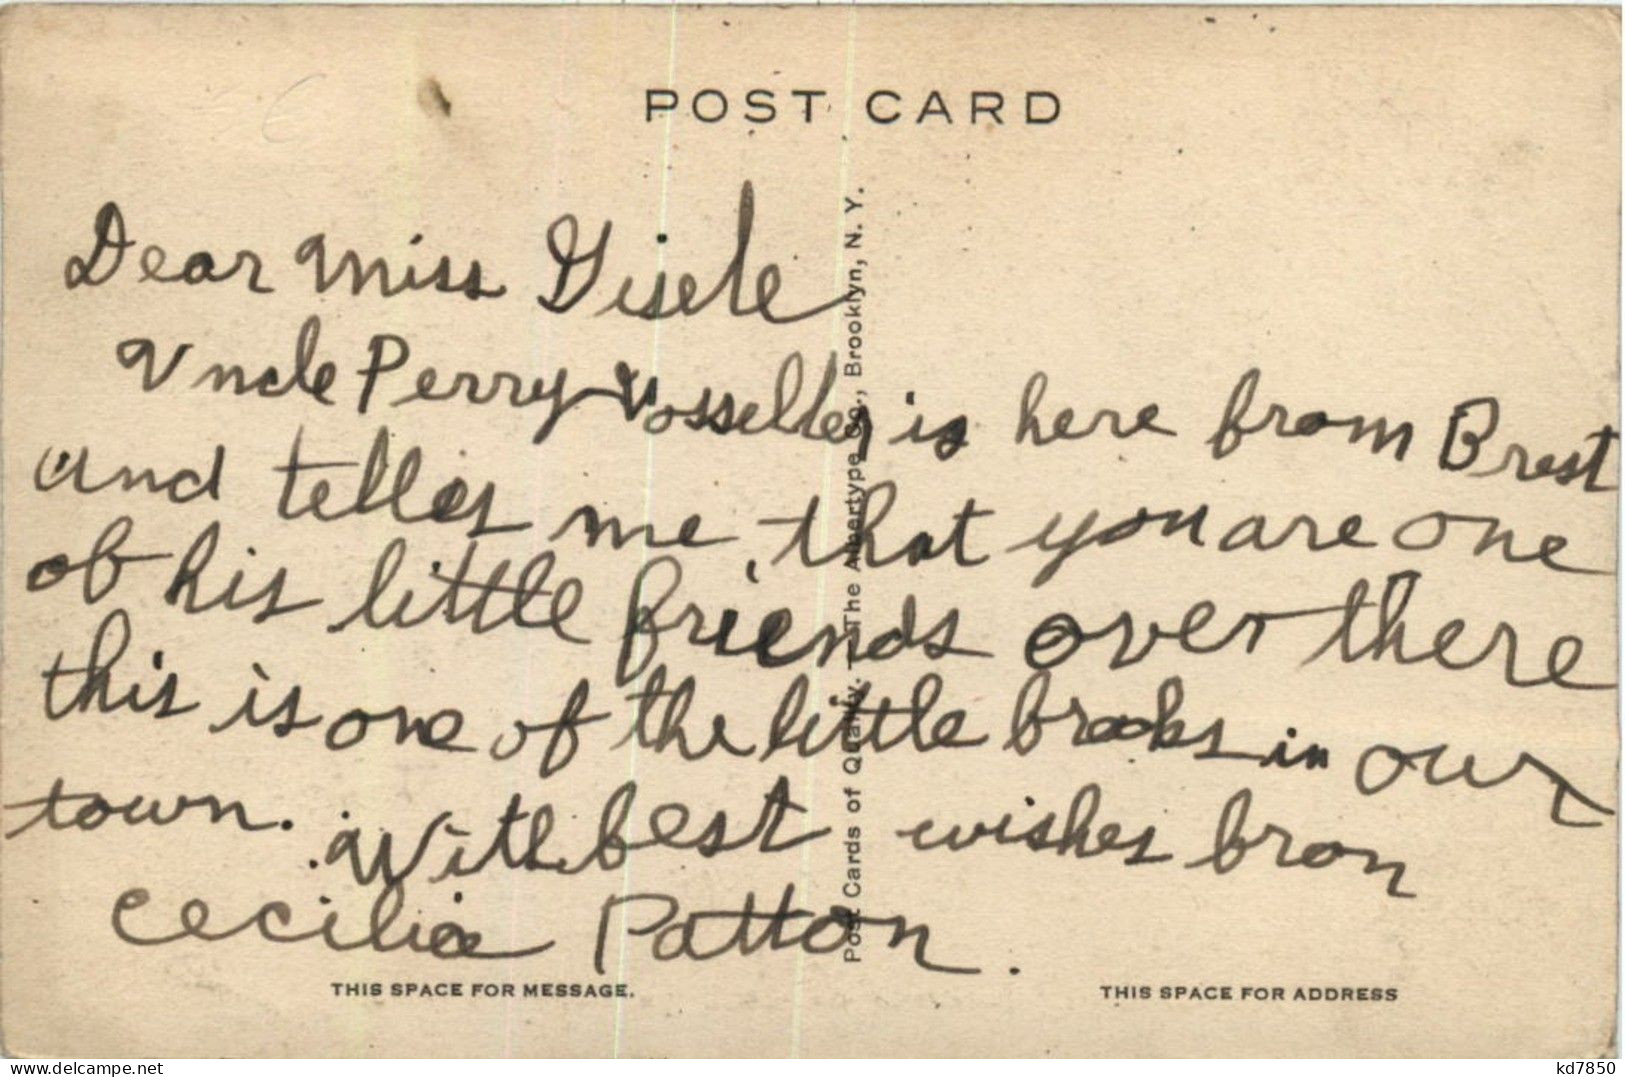 POST CARD
Dear Miss Gisele
Uncle Perry is here from Brest
and telles me, that you are one
of his little friends over there
this is one of the little brooks in our
town. With best wishes from
Cecilia Patton.
THIS SPACE FOR MESSAGE.
THIS SPACE FOR ADDRESS
Post Cards of Quality. - The Albertype Co., Brooklyn, N. Y.
www.delcampe.net
kd7850